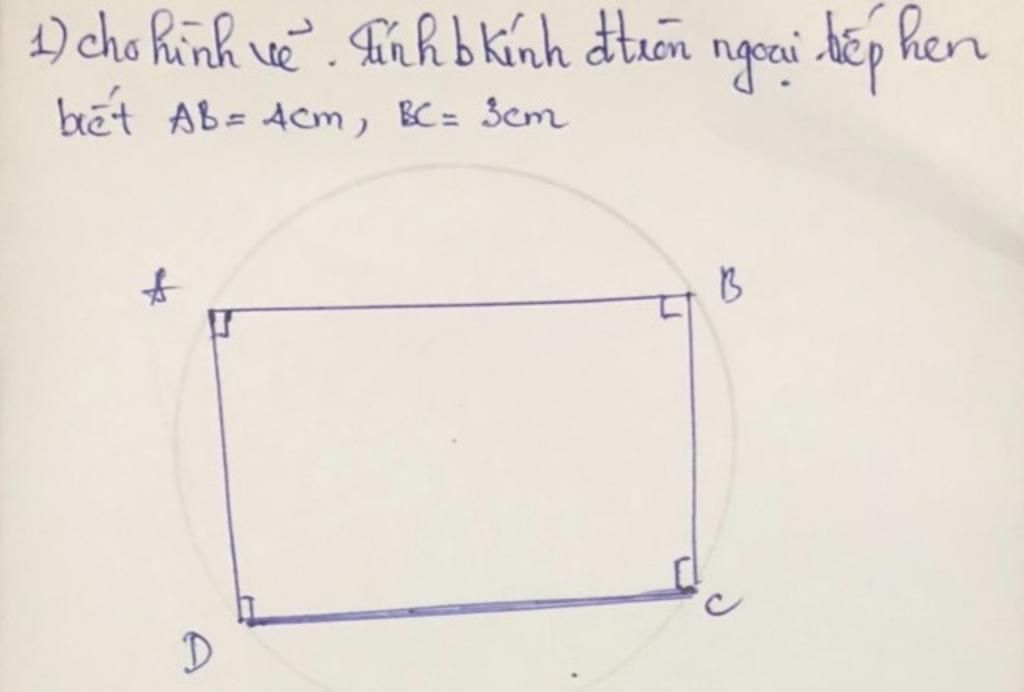 1) cho hình vẽ. Tính b kính đtròn ngoại tiếp hcn
biết AB = 4cm, BC = 3cm
A
B
D
C